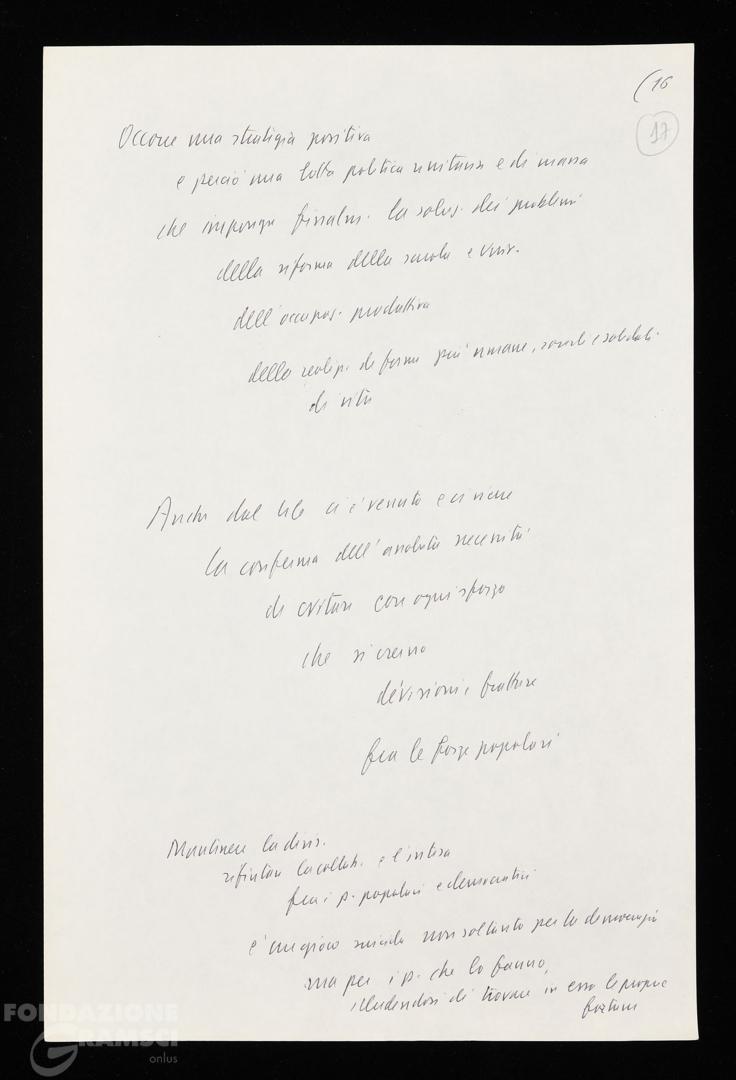 (16
17
Occorre una strategia positiva
e perciò una lotta politica unitaria e di massa
che imponga finalm. la soluz. dei problemi
della riforma della scuola e univ.
dell'occupaz. produttiva
della realizz. di forme più umane, sociali e solidali
di vita
Anche dal Cile ci è venuta e ci viene
la conferma dell'assoluta necessità
di evitare con ogni sforzo
che si creino
divisioni e fratture
fra le forze popolari
Mantenere la divis.
rifiutare la collab. e l'intesa
fra i p. popolari e democratici
è un gioco suicida non soltanto per la democrazia
ma per i p. che lo fanno,
illudendosi di trovare in esso le proprie
fortune
FONDAZIONE
GRAMSCI
onlus